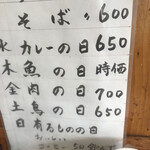 そば 〃600
水 カレーの日 650
木 魚の日 時価
金 肉の日 700
土 鳥の日 650
日 有るものの日